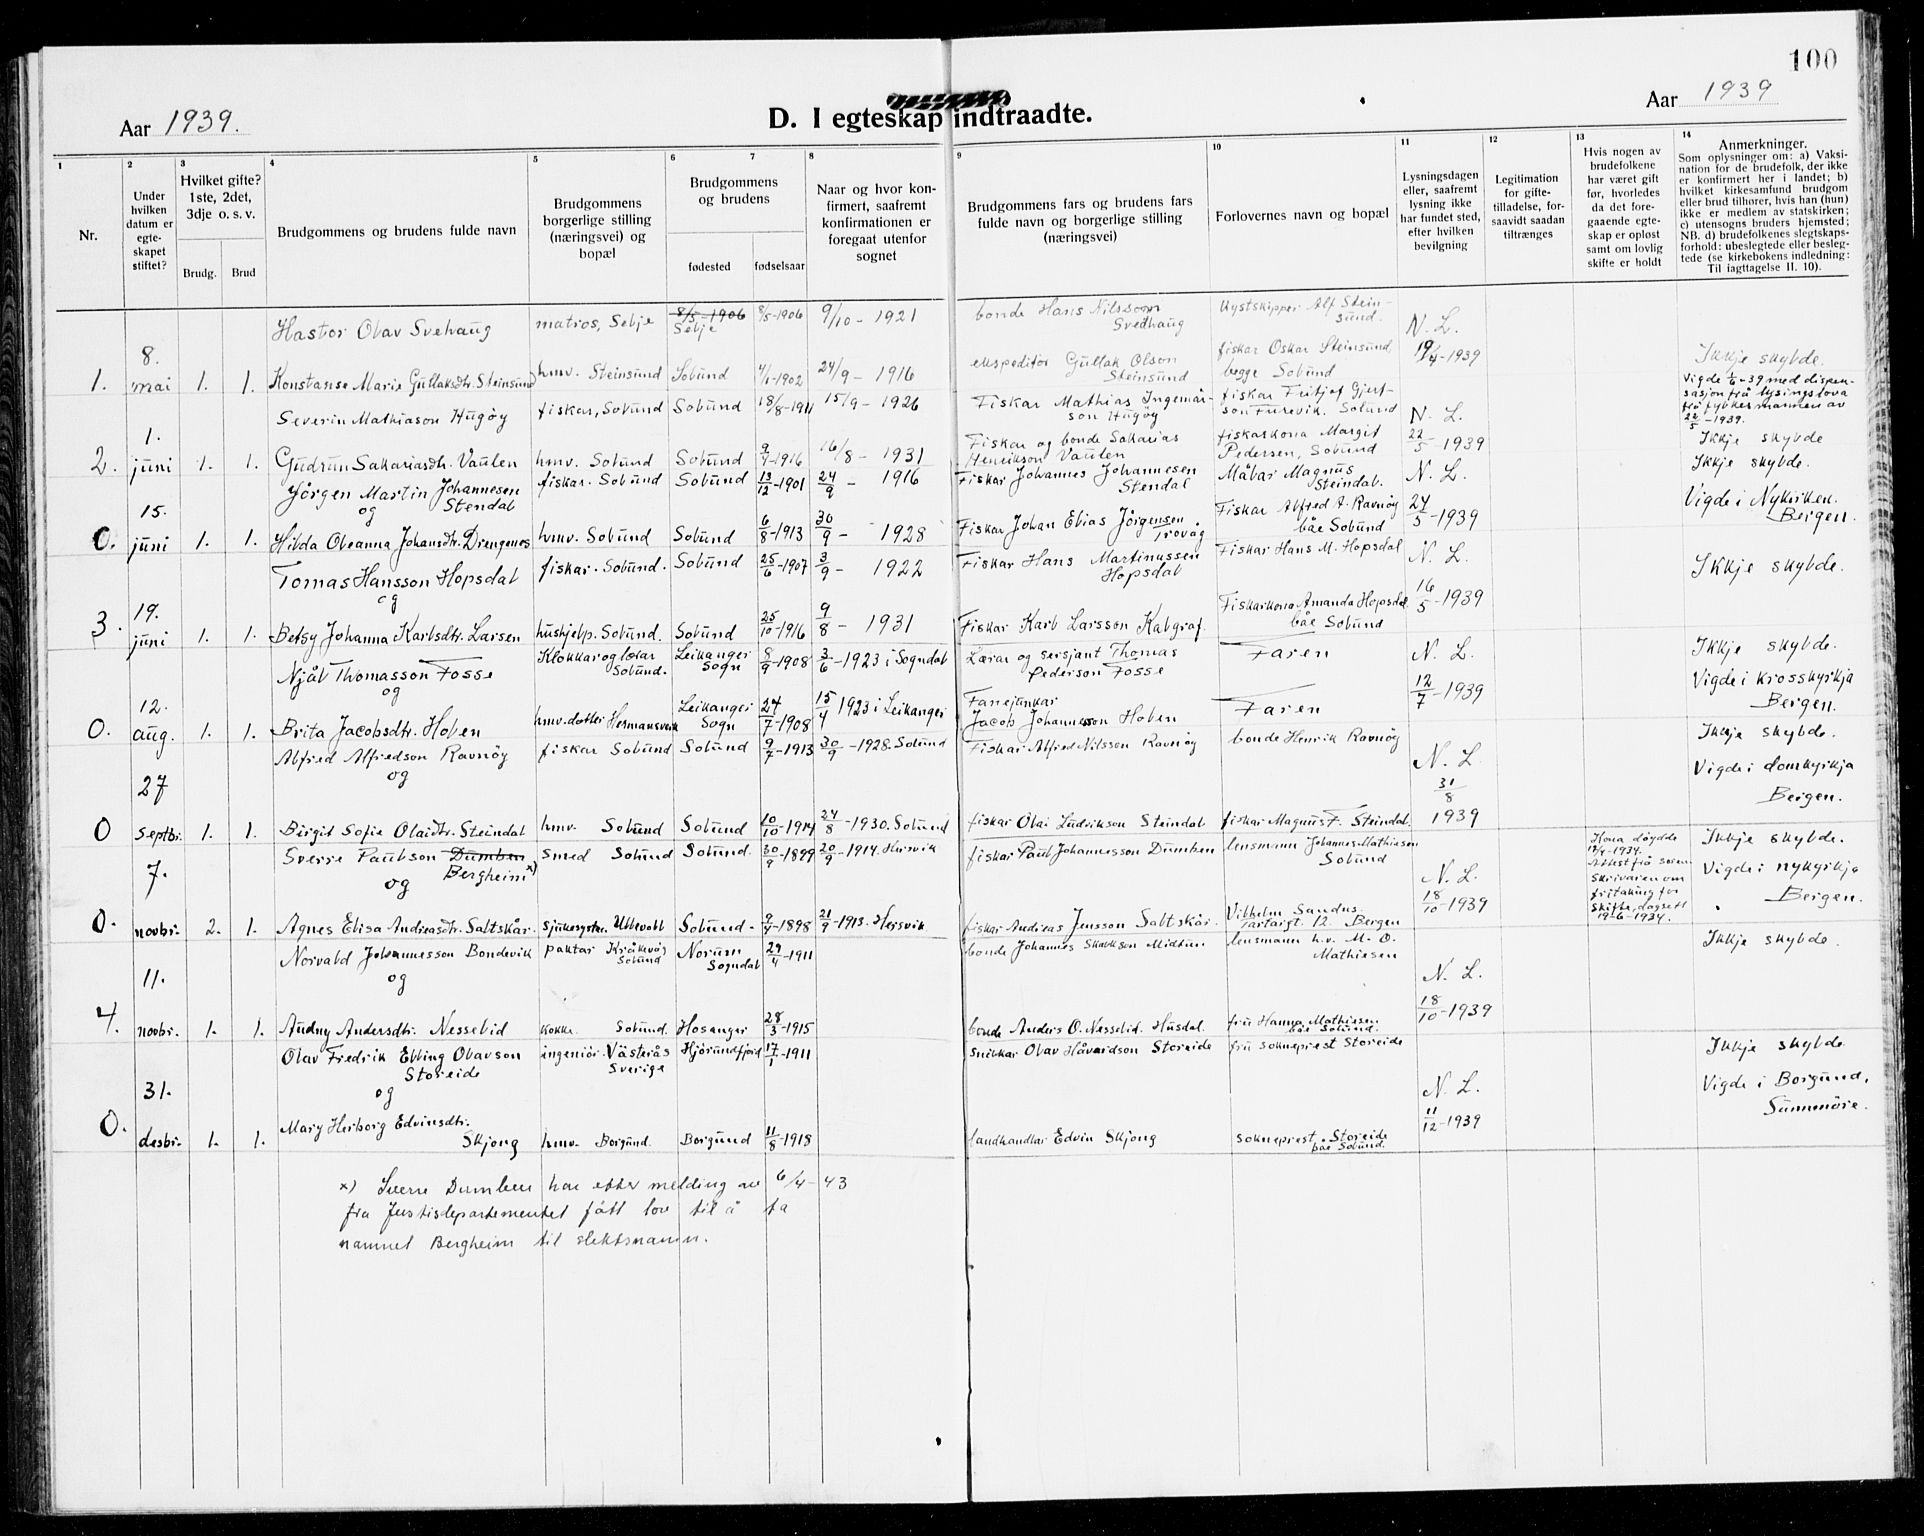 100
Aar 1939.
D. I egteskap indtraadte.
Aar 1939
1 2 3 4 5 6 7 8 9 10 11 12 13 14
Nr.
Under hvilken datum er egte-skapet stiftet?
Hvilket gifte? 1ste, 2det, 3dje o. s. v.
Brudg. Brud
Brudgommens og brudens fulde navn
Brudgommens borgerlige stilling (næringsvei) og bopæl
Brudgommens og brudens
fødested fødselsaar
Naar og hvor kon-firmert, saafremt konfirmationen er foregaat utenfor sognet
Brudgommens fars og brudens fars fulde navn og borgerlige stilling (næringsvei)
Forlovernes navn og bopæl
Lysningsdagen eller, saafremt lysning ikke har fundet sted, efter hvilken bevilgning
Legitimation for gifte-tilladelse, for-saavidt saadan tiltrænges
Hvis nogen av brudefolkene har været gift før, hvorledes da det fore-gaaende egte-skap er opløst samt om lovlig skifte er holdt
Anmerkninger.
Som oplysninger om: a) Vaksi-nation for de brudefolk, der ikke er konfirmert her i landet; b) hvilket kirkesamfund brudgom eller brud tilhører, hvis han (hun) ikke er medlem av statskirken; c) utensogns bruders hjemsted; NB. d) brudefolkenes slegtskaps-forhold: ubeslegtede eller besleg-tede (se kirkebokens indledning: Til iagttagelse II. 10).
Hastor Olav Svehaug matros, Selje 8/5-1906 Selje 8/5-1906 9/10 - 1921 bonde Hans Nilsson Svedhaug Kystskipper Alf Stein-sund. N. L.
1. 8. mai 1. 1. Konstanse Marie Gullaksdtr. Steinsund hmv. Steinsund Solund 4/1-1902 24/9 - 1916 ekspeditør Gullak Olson Steinsund fiskar Oskar Steinsund, begge Solund 19/4-1939 Ikkje skylde.
Vigde 1/6-39 med dispen-sasjon frå lysingslova frå fylkesmannen av 22/5-1939.
Severin Mathiason Hugøy fiskar, Solund Solund 18/8-1911 15/9 - 1926 Fiskar Mathias Ingemar-son Hugøy fiskar Fritjof Gjert-son Furevik. Solund N. L.
2. 1. juni 1. 1. Gudrun Sakariasdtr. Vaulen hmv. Solund Solund 9/4-1916 16/8 - 1931 Fiskar og bonde Sakarias Henrikson Vaulen fiskarkona Margit Pedersen, Solund 22/5-1939 Ikkje skylde
Jørgen Martin Johannesen Stendal fiskar. Solund Solund 13/12-1901 24/9 - 1916 Fiskar Johannes Johannesen Stendal Målar Magnus Steindal. N. L. Ikkje skylde.
og
0. 15. juni 1. 1. Hilda Oleanna Johansdtr. Drengenes hmv. Solund Solund 6/8-1913 30/9 - 1928 Fiskar Johan Elias Jørgensen Trovåg Fiskar Alfred A. Ravnøy båe Solund 27/5-1939 Vigde i Nykirken. Bergen.
Tomas Hansson Hopsdal fiskar. Solund. Solund 25/6-1907 3/9 - 1922 Fiskar Hans Martinussen Hopsdal Fiskar Hans M. Hopsdal N. L. Ikkje skylde.
og
3. 19. juni 1. 1. Betsy Johanna Karlsdtr. Larsen hushjelp. Solund. Solund 25/10-1916 9/8 - 1931 Fiskar Karl Larsson Kalgraf. Fiskarkona Amanda Hopsdal båe Solund 16/5-1939
Njål Thomasson Fosse Klokkar og lærar Solund. Leikanger Sogn 8/9-1908 3/6-1923 i Sogndal Lærar og sersjant Thomas Pederson Fosse Faren N. L. Ikkje skylde.
og
0. 12. aug. 1. 1. Brita Jacobsdtr. Holen hmv. dotter Hermansverk Leikanger Sogn 27/7-1908 15/4 1923 i Leikanger Fanejunkar Jacob Johannesson Holen Faren 12/7-1939 Vigde i Krosskyrkja Bergen.
Alfred Alfredson Ravnøy fiskar Solund Solund 9/7-1913 30/9-1928. Solund Fiskar Alfred Nilsson Ravnøy bonde Henrik Ravnøy N. L. Ikkje skylde.
og
0 27 septbr. 1. 1. Birgit Sofie Olaidtr. Steindal hmv. Solund Solund 10/10-1914 24/8-1930. Solund fiskar Olai Ludvikson Steindal fiskar Magnus F. Steindal. 31/8 1939 Vigde i domkyrkja Bergen.
Sverre Paulson Dumben Bergheim x) smed Solund Solund. 30/9-1899 20/9-1914. Hersvik fiskar Paul Johannesson Dumben lensmann Johannes Mathiesen Solund N. L. Kona døydde 17/4-1934. Attest frå soren-skrivaren om fritaking for skifte, dagsett 19-6-1934. Ikkje skylde.
og
0. 7. novbr. 2. 1. Agnes Elisa Andreasdtr. Saltskår. sjukesyster Ullevoll Solund. 9/4-1898 21/9-1913. Hersvik fiskar Andreas Jensson Saltskår. Vilhelm Sandnes. Tartargt. 12. Bergen 18/10-1939 Vigde i nykyrkja Bergen.
Norvald Johannesson Bondevik paktar Kråkevåg Solund Norum Sogndal 29/4-1911 bonde Johannes Sharkson Midtun lensmann h.v. M. O. Mathiesen N. L. Ikkje skylde.
og
4. 11. novbr. 1. 1. Audny Andersdtr. Nesselid kokke Solund. Hosanger 28/3-1915 bonde Anders O. Nesselid. Husdal. fru Hanna Mathiesen båe Solund. 18/10-1939
Olav Fredrik Ebbing Olavson Storeide ingeniør. Västerås Sverige Hjørundfjord 17/1-1911 snikkar Olav Håvardson Storeide fru sokneprest Storeide N. L. Ikkje skylde.
og
0. 31. desbr. 1. 1. Mary Herborg Edvinsdtr. Skjong hmv. Borgund. Borgund 11/8-1918 landhandlar Edvin Skjong sokneprest Storeide båe Solund. 11/12-1939 Vigde i Borgund, Sunnmøre.
x) Sverre Dumben har etter melding av 6/4-43
fra Justisdepartementet fått lov til å ta
namnet Bergheim til slektsnamn.